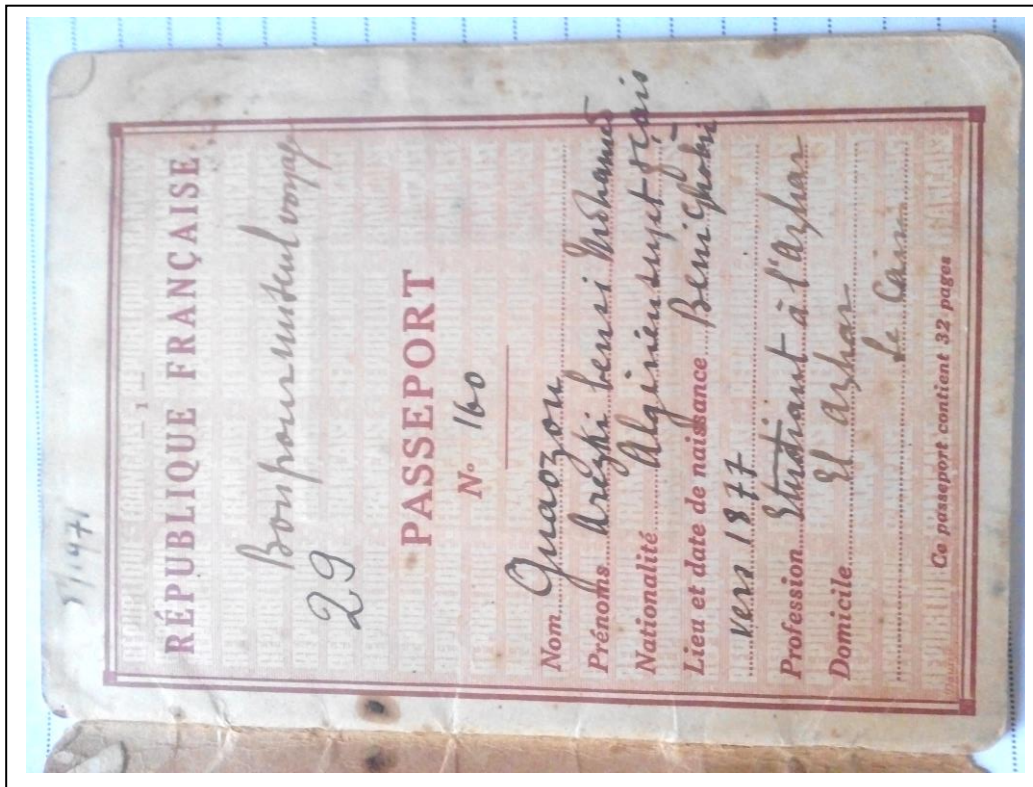 — 1 —
RÉPUBLIQUE FRANÇAISE
Bon pour un seul voyage
29
PASSEPORT
N° 160
Nom Guaozon
Prénoms Arezki beni Mohamed
Nationalité Algérien sujet fçais
Lieu et date de naissance Beni Ghobri
vers 1877
Profession Etudiant à l'Azhar
Domicile El Azhar
Le Caire
Ce passeport contient 32 pages